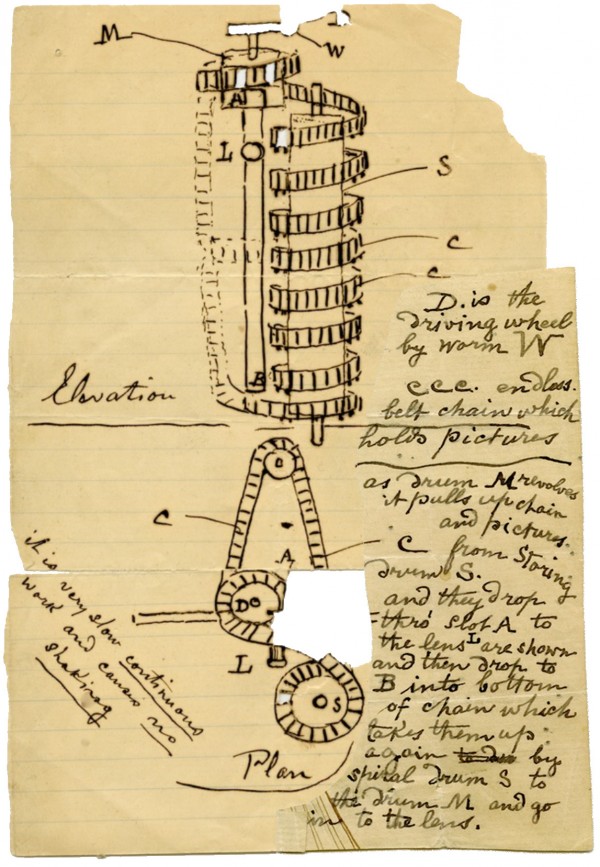 M
W
A
L
S
C
C
B
Elevation
D. is the
driving wheel
by worm W
C.C.C. endless.
belt chain which
holds pictures
as drum M revolves
it pulls up chain
and pictures.
from Storing
drum S.
and they drop
thro' slot A to
the lens L are shown
and then drop to
B into bottom
of chain which
takes them up
again by
spiral drum S to
the drum M and go
in to the lens.
C
C
A
D
L
S
Plan
it is very slow continuous
work and causes no
shaking